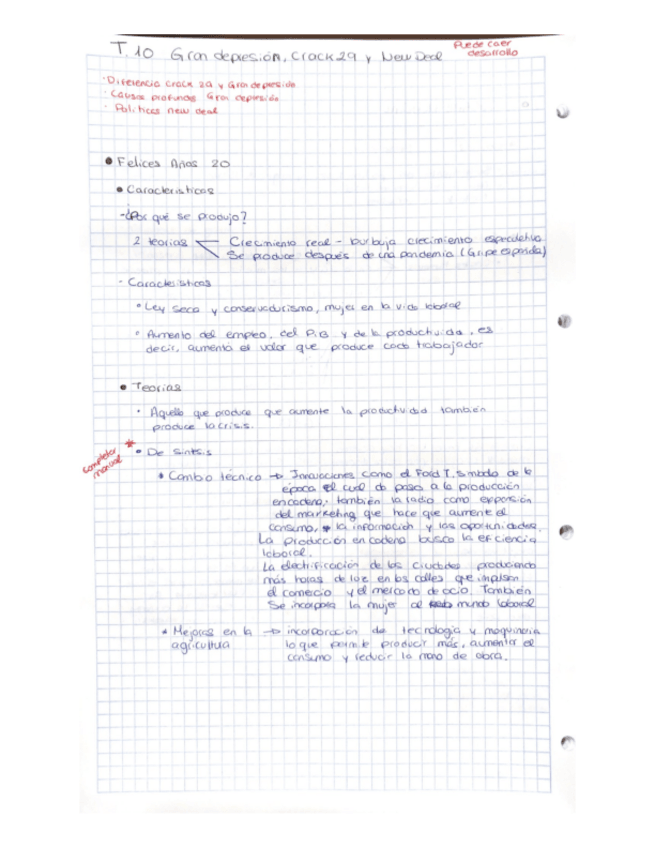 T.10 Gran depresión, Crack 29 y New Deal
Puede caer
desarrollo
· Diferencia Crack 29 y Gran depresión
· Causas profundas Gran depresión
· Políticas new deal
• Felices Años 20
• Características
-¿Por qué se produjo?
2 teorías
Crecimiento real - burbuja crecimiento especulativo
Se produce después de una pandemia (Gripe española)
- Características
° Ley seca y conservadurismo, mujer en la vida laboral
° Aumento del empleo, del P.I.B y de la productividad, es
decir, aumenta el valor que produce cada trabajador
• Teorías
· Aquello que produce que aumente la productividad también
produce la crisis.
completar
manual
*
• De síntesis
• Cambio técnico → Innovaciones como el Ford T, símbolo de la
época el cual da paso a la producción
en cadena, también la radio como expansión
del marketing que hace que aumente el
consumo, la información y las oportunidades.
La producción en cadena busca la eficiencia
laboral.
La electrificación de las ciudades produciendo
más horas de luz en las calles que impulsan
el comercio y el mercado de ocio. También
se incorpora la mujer al mundo laboral
• Mejoras en la → incorporación de tecnología y maquinaria
agricultura lo que permite producir más, aumentar el
consumo y reducir la mano de obra.